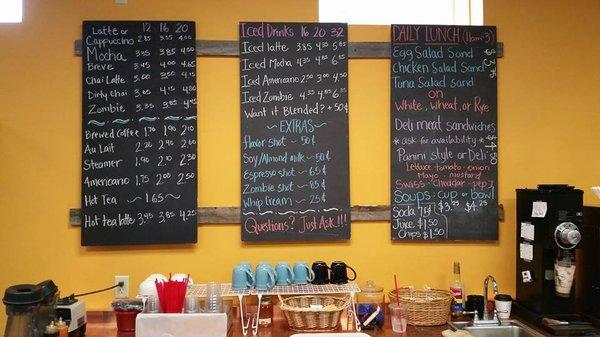 Latte or 12 16 20
Cappuccino 2.85 3.55 4.00
Mocha 3.35 3.85 4.50
Breve 3.45 4.00 4.65
Chai Latte 3.60 3.90 4.15
Dirty Chai 3.65 4.15 4.80
Zombie 3.35 3.85 4.45
Brewed Coffee 1.70 1.90 2.10
Au Lait 2.20 2.40 2.60
Steamer 1.90 2.10 2.30
Americano 1.75 2.00 2.50
Hot Tea ~ 1.65 ~
Hot tea latte 3.45 3.85 4.25
Iced Drinks 16 20 32
Iced latte 3.85 4.35 5.85
Iced Mocha 4.35 4.85 6.35
Iced Americano 2.50 3.00 4.50
Iced Zombie 4.35 4.85 6.35
Want it Blended? + 50¢
~EXTRAS~
flavor shot ~ 50¢
Soy/Almond milk ~ 50¢
Espresso shot ~ 65¢
Zombie shot ~ 85¢
Whip cream ~ 25¢
Questions? Just Ask!!!
DAILY LUNCH (11am-3)
Egg Salad Sand
Chicken Salad Sand
Tuna Salad Sand
on
White, Wheat, or Rye
Deli meat sandwiches
*ask for availability*
Panini style or Deli
Lettuce tomato onion
Mayo mustard
Swiss Cheddar pepj
Soups: cup or bowl
$3.25 $4.25
Soda
Juice $1.50
Chips $1.50